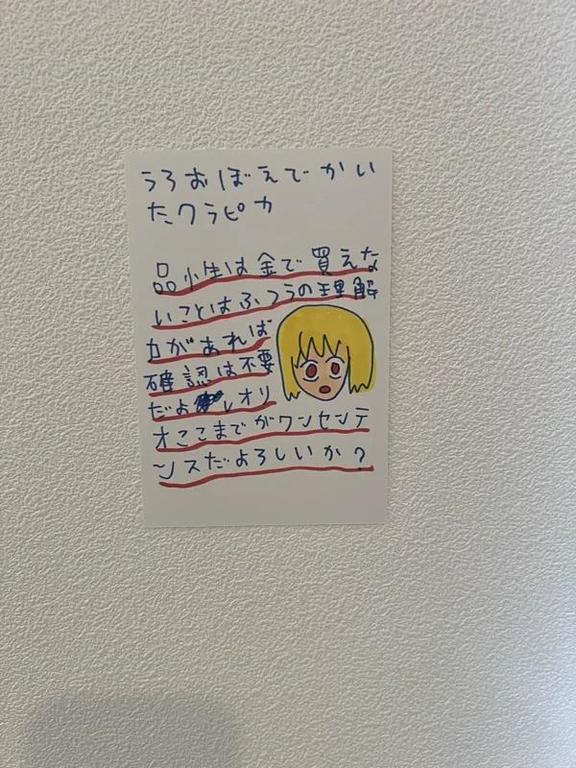 うろおぼえでかい
たクラピカ
品性は金で買えな
いことはふつうの理解
力があれば
確認は不要
だよ レオリ
オここまでがワンセンテ
ンスだよろしいか?